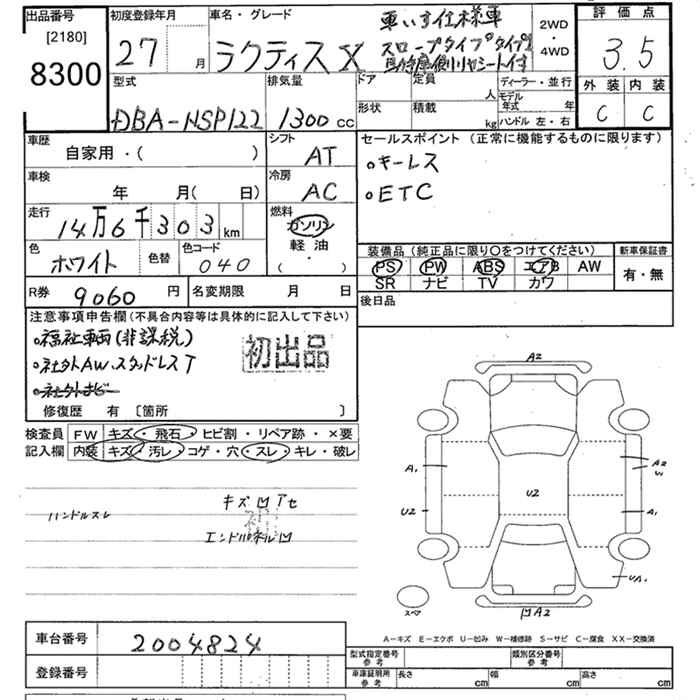 出品番号 初度登録年月 車名・グレード 車いす仕様車 2WD 評価点
[2180] スロープタイプ タイプⅠ ・
8300 27 月 ラクティス X 4WD 3.5
型式 排気量 ドア 定員 人 ディーラー・並行 外装 内装
DBA-NSP122 1300cc 形状 積載 kg モデル年式 年 C C
ハンドル 左・右
車歴 シフト セールスポイント (正常に機能するものに限ります)
自家用・( ) AT 。キーレス
車検 冷房 。ETC
年 月( 日) AC
走行 燃料
14万6千303km ガソリン
色 色替 色コード 軽油
ホワイト 040 ( ・ )
装備品(純正品に限り〇をつけてください) 新車保証書
PS PW ABS エアB AW 有・無
SR ナビ TV カワ
R券 9060円 名変期限 月 日
後日品
注意事項申告欄(不具合内容等は具体的に記入して下さい)
。福祉車両(非課税)
。社外AW、スタッドレスT
。社外ナビー
初出品
修復歴 有 〔箇所 〕
検査員 FW キズ・飛石・ヒビ割・リペア跡・×要
記入欄 内装 キズ・汚レ・コゲ・穴・スレ・キレ・破レ
キズ凹アセ
ハンドルスレ
エンドパネル凹
A2
A1 A2
W
U2 U2 A1
UA1
スペア 凹A2
A-キズ E-エクボ U-凹み W-補修跡 S-サビ C-腐食 XX-交換済
車台番号 2004824
登録番号
型式指定番号 参考 類別区分番号 参考
車庫証明用 参考 長さ cm 幅 cm 高さ cm